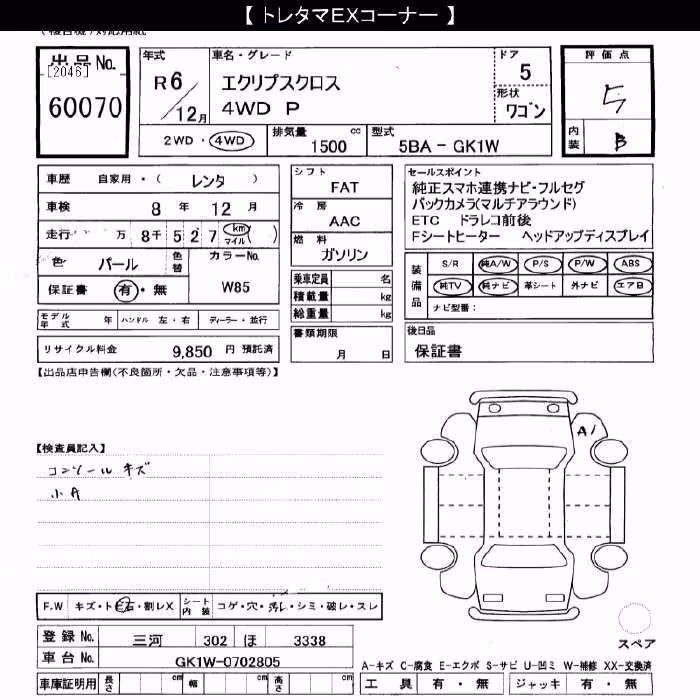 【 トレタマEXコーナー 】
出品No.
[2046]
60070
年式
R6
/12月
車名・グレード
エクリプスクロス
4WD P
ドア
5
形状
ワゴン
評価点
5
内装
B
2WD・4WD
排気量
1500 cc
型式
5BA - GK1W
車歴 自家用・( レンタ )
車検 8 年 12 月
走行 万 8千 5 2 7 ( km マイル )
色 パール 色替
カラーNo.
W85
保証書 有・無
モデル年式 年 ハンドル 左・右 ディーラー・並行
リサイクル料金 9,850 円 預託済
シフト
FAT
冷房
AAC
燃料
ガソリン
乗車定員 名
積載量 kg
総重量 kg
書類期限
月 日
セールスポイント
純正スマホ連携ナビ・フルセグ
バックカメラ(マルチアラウンド)
ETC ドラレコ前後
Fシートヒーター ヘッドアップディスプレイ
装備品
S/R 純A/W P/S P/W ABS
純TV 純ナビ 革シート 外ナビ エアB
ナビ型番:
後日品
保証書
【出品店申告欄(不良箇所・欠品・注意事項等)】
【検査員記入】
コンソールキズ
小キズ
A1
F.W キズ・ト石・割レX
シート内装 コゲ・穴・汚レ・シミ・破レ・スレ
登録No. 三河 302 ほ 3338
車台No. GK1W-0702805
車庫証明用 長さ cm 幅 cm 高さ cm
スペア
A-キズ C-腐食 E-エクボ S-サビ U-凹ミ W-補修 XX-交換済
工具 有・無 ジャッキ 有・無